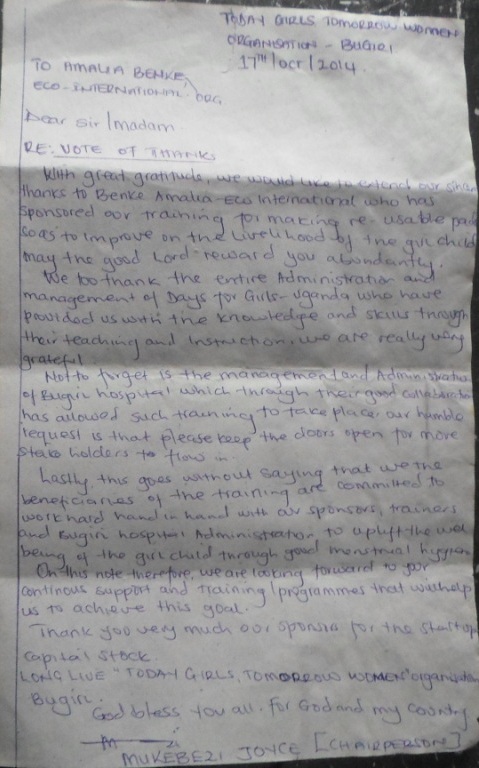 TODAY GIRLS TOMORROW WOMEN
ORGANISATION - BUGIRI
17TH/OCT/2014.
TO AMALIA BENKE,
ECO-INTERNATIONAL ORG.
Dear Sir/madam.
RE: VOTE OF THANKS
With great gratitude, we would like to extend our
thanks to Benke Amalia-Eco International who has
sponsored our training for making re-usable pads
so as to improve on the livelihood of the girl child
may the good Lord reward you abundantly.
We too thank the entire Administration and
management of Days for Girls-Uganda who have
provided us with the knowledge and skills through
their teaching and Instruction. we are really very
grateful.
Not to forget is the management and Administration
of Bugiri hospital which through their good collaboration
has allowed such training to take place. our humble
request is that please keep the doors open for more
stake holders to flow in.
Lastly, this goes without saying that we the
beneficiaries of the training are committed to
work hard hand in hand with our sponsors, trainers
and Bugiri hospital Administration to uplift the well
being of the girl child through good menstrual hygiene
On this note therefore, we are looking forward to your
continous support and training/programmes that will help
us to achieve this goal.
Thank you very much our sponsors for the start up
capital stock.
LONG LIVE "TODAY GIRLS, TOMORROW WOMEN" organisation
Bugiri.
God bless you all. for God and my country
MUKEBEZI JOYCE [CHAIRPERSON]